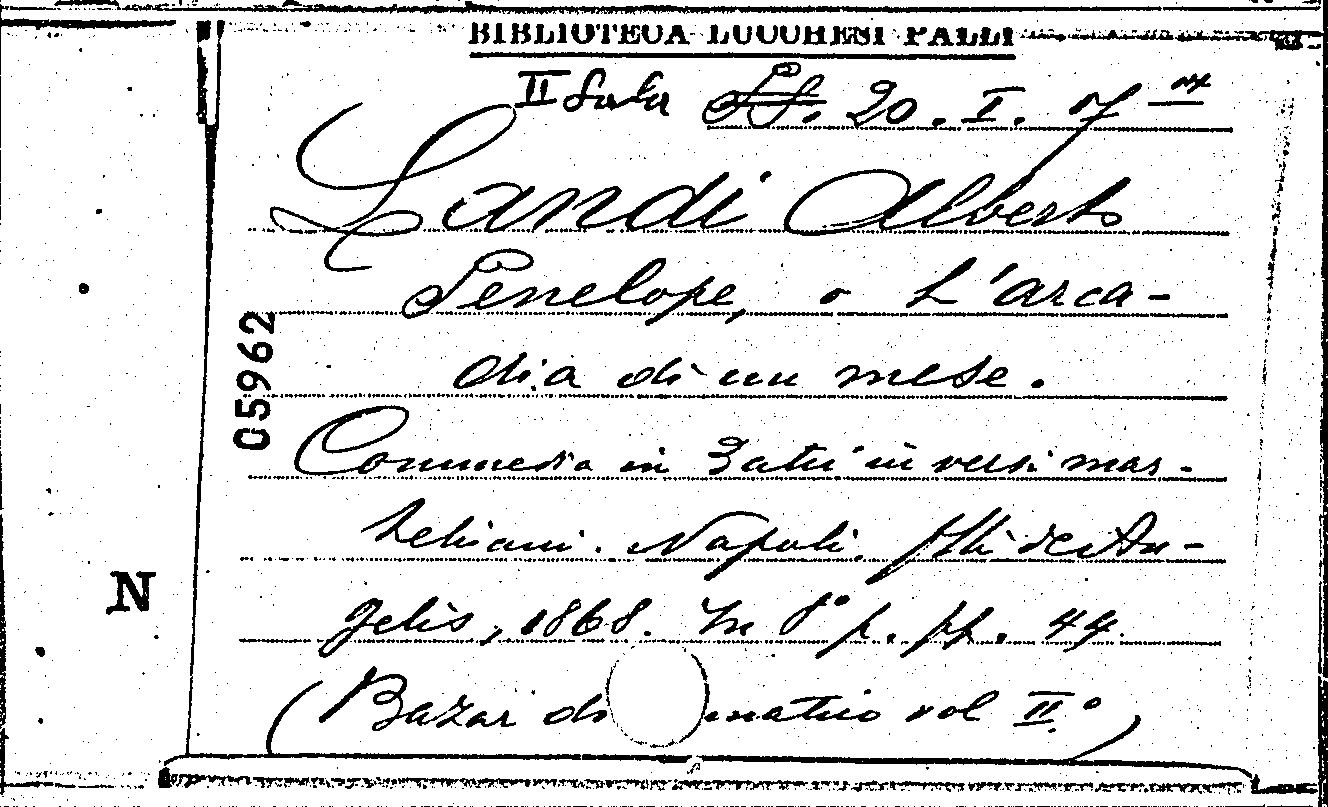 BIBLIOTECA LUCCHESI PALLI
II Sala 20. I. 7
Landi Alberto
Penelope, o L'arca-
dia di un mese.
Commedia in 3 atti in versi mar-
teliani. Napoli. flli de An-
gelis, 1868. In 8° p. pp. 44.
(Bazar d matico vol II.°)
05962
N